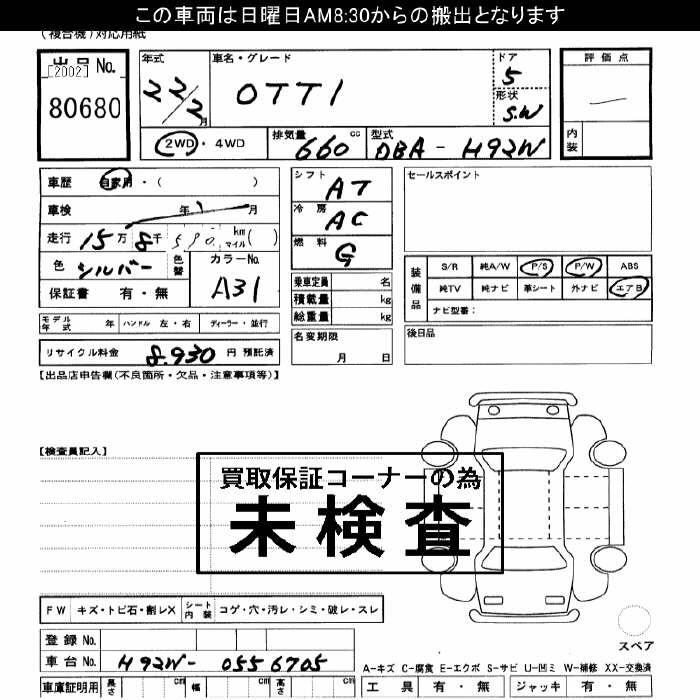 この車両は日曜日AM8:30からの搬出となります
(複合機)対応用紙
出品 No.
[2002]
80680
年式
22/2月
車名・グレード
OTTI
ドア
5
形状
S.W
評価点
内装
2WD・4WD
排気量
660 cc
型式
DBA - H92W
車歴 自家用・( )
車検 年 月
走行 15万 8千 590 km マイル( )
色 シルバー 色替
カラーNo.
A31
保証書 有・無
シフト
AT
冷房
AC
燃料
G
乗車定員 名
積載量 kg
総重量 kg
名変期限
月 日
セールスポイント
装備品
S/R 純A/W P/S P/W ABS
純TV 純ナビ 革シート 外ナビ エアB
ナビ型番:
後日品
モデル年式 年 ハンドル 左・右 ディーラー・並行
リサイクル料金 8.930 円 預託済
【出品店申告欄(不良箇所・欠品・注意事項等)】
【検査員記入】
買取保証コーナーの為
未検査
FW キズ・トビ石・割レX シート内装 コゲ・穴・汚レ・シミ・破レ・スレ
登録 No.
車台 No. H92W- 0556705
車庫証明用 長さ cm 幅 cm 高さ cm
スペア
A-キズ C-腐食 E-エクボ S-サビ U-凹ミ W-補修 XX-交換済
工具 有・無 ジャッキ 有・無